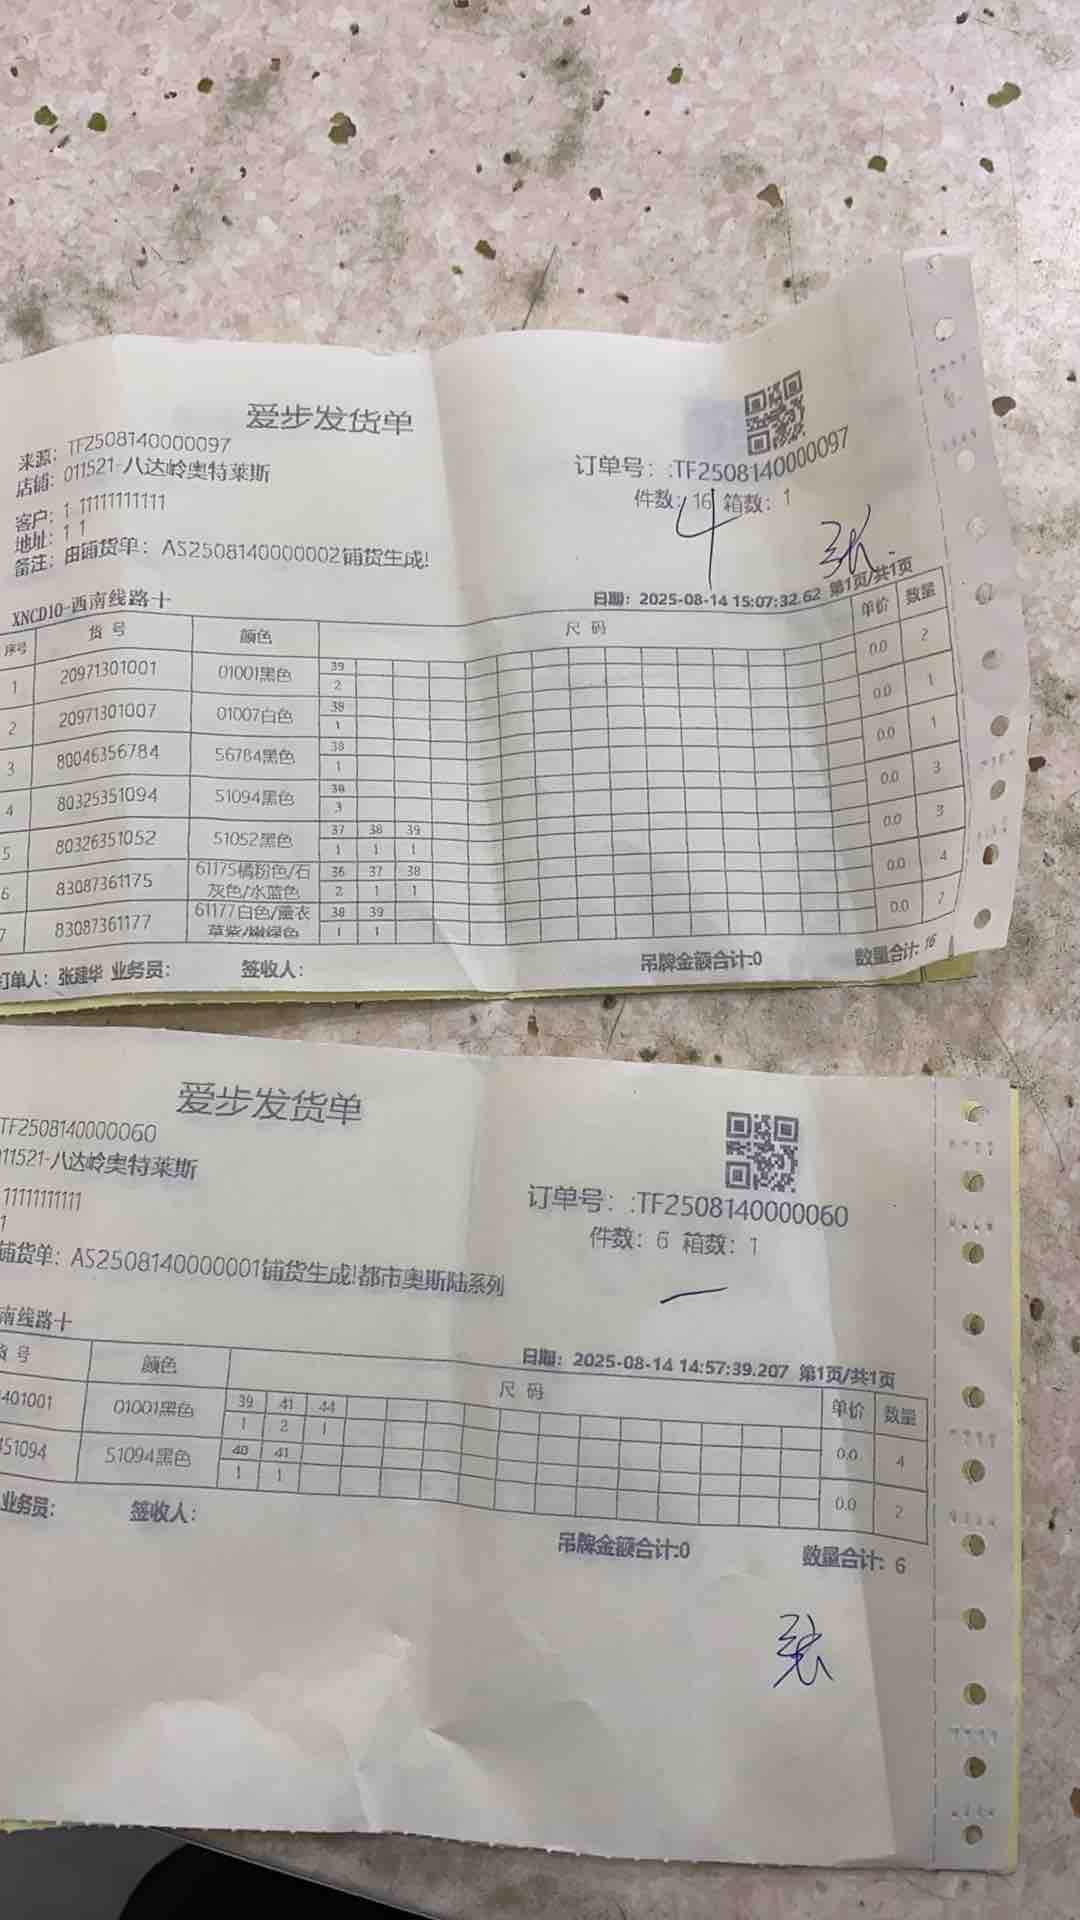 爱步发货单
来源：TF2508140000097
店铺：011521-八达岭奥特莱斯
订单号：:TF2508140000097
客户：1 11111111111
件数：16 箱数：1
4
地址：1 1
张
备注：由铺货单：AS2508140000002铺货生成!
XNCD10-西南线路十
日期：2025-08-14 15:07:32.62 第1页/共1页
序号 货号 颜色 尺码 单价 数量
1 20971301001 01001黑色 39 0.0 2
2
2 20971301007 01007白色 38 0.0 1
1
3 80046356784 56784黑色 38 0.0 1
1
4 80325351094 51094黑色 0.0 3
3
5 80326351052 51052黑色 37 38 39 0.0 3
1 1 1
6 83087361175 61175橘粉色/石灰色/水蓝色 36 37 38 0.0 4
2 1 1
7 83087361177 61177白色/薰衣草紫/嫩绿色 38 39 0.0 2
1 1
订单人：张建华 业务员： 签收人： 吊牌金额合计:0 数量合计: 16
爱步发货单
TF2508140000060
011521-八达岭奥特莱斯
订单号：:TF2508140000060
11111111111
件数：6 箱数：1
1
铺货单：AS2508140000001铺货生成!都市奥斯陆系列
南线路十
日期：2025-08-14 14:57:39.207 第1页/共1页
货号 颜色 尺码 单价 数量
401001 01001黑色 39 41 44 0.0 4
1 2 1
51094 51094黑色 40 41 0.0 2
1 1
业务员： 签收人： 吊牌金额合计:0 数量合计: 6
张